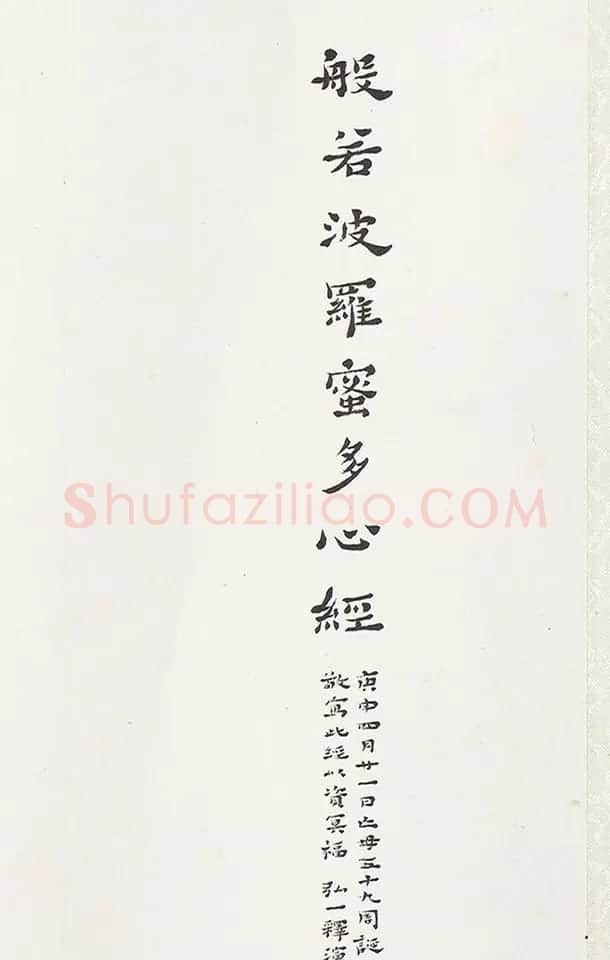 般若波羅蜜多心經
庚申四月廿一日亡母五十九周誕
敬寫此經以資冥福 弘一釋演
Shufaziliao.COM